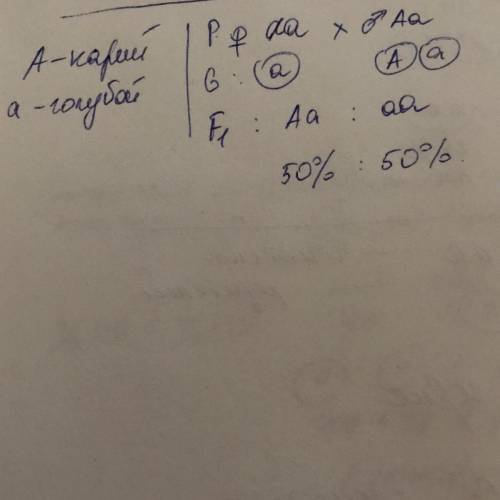 А - карий
а - голубой
P. ♀ aa × ♂ Aa
G : a A a
F1 : Aa : aa
50% : 50%.